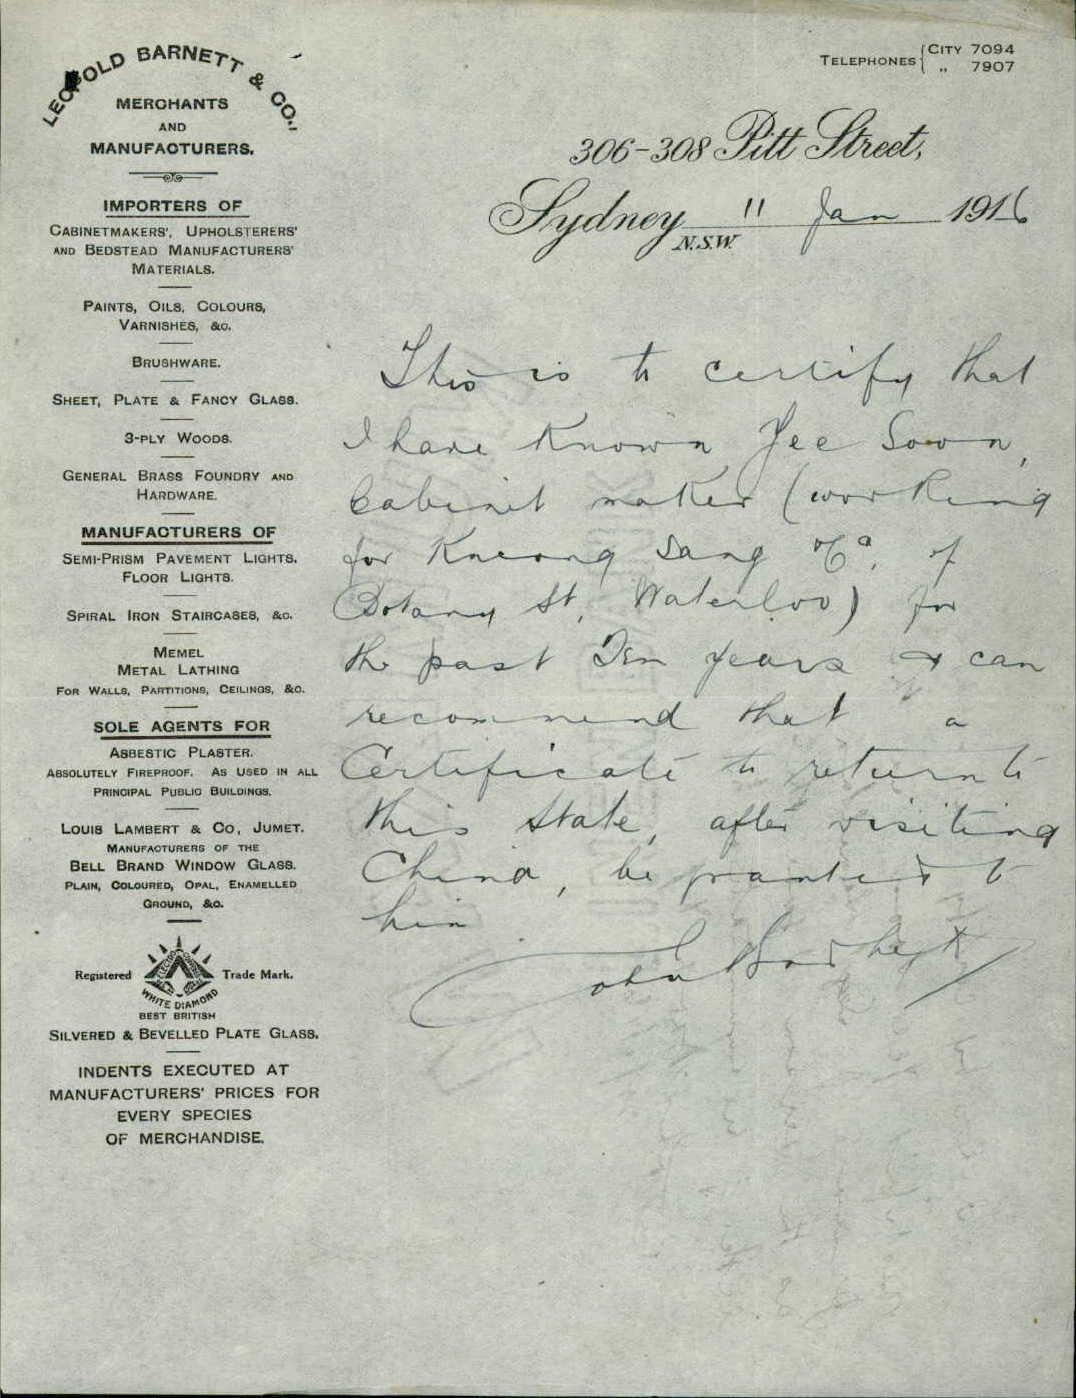 LEOPOLD BARNETT & CO.,
MERCHANTS
AND
MANUFACTURERS.
IMPORTERS OF
CABINETMAKERS', UPHOLSTERERS'
AND BEDSTEAD MANUFACTURERS'
MATERIALS.
PAINTS, OILS, COLOURS,
VARNISHES, &c.
BRUSHWARE.
SHEET, PLATE & FANCY GLASS.
3-PLY WOODS.
GENERAL BRASS FOUNDRY AND
HARDWARE.
MANUFACTURERS OF
SEMI-PRISM PAVEMENT LIGHTS.
FLOOR LIGHTS.
SPIRAL IRON STAIRCASES, &c.
MEMEL
METAL LATHING
FOR WALLS, PARTITIONS, CEILINGS, &c.
SOLE AGENTS FOR
ASBESTIC PLASTER.
ABSOLUTELY FIREPROOF. AS USED IN ALL
PRINCIPAL PUBLIC BUILDINGS.
LOUIS LAMBERT & CO, JUMET.
MANUFACTURERS OF THE
BELL BRAND WINDOW GLASS.
PLAIN, COLOURED, OPAL, ENAMELLED
GROUND, &c.
Registered Trade Mark.
WHITE DIAMOND
BEST BRITISH
SILVERED & BEVELLED PLATE GLASS.
INDENTS EXECUTED AT
MANUFACTURERS' PRICES FOR
EVERY SPECIES
OF MERCHANDISE.
TELEPHONES { CITY 7094
" 7907
306-308 Pitt Street,
Sydney 11 Jan 1916
N.S.W.
This is to certify that
I have known Yee Soon,
Cabinet maker (working
for Kneong Sang & Co, of
Botany St, Waterloo) for
the past Ten years & can
recommend that a
Certificate to return to
this State, after visiting
China, be granted to
him
John